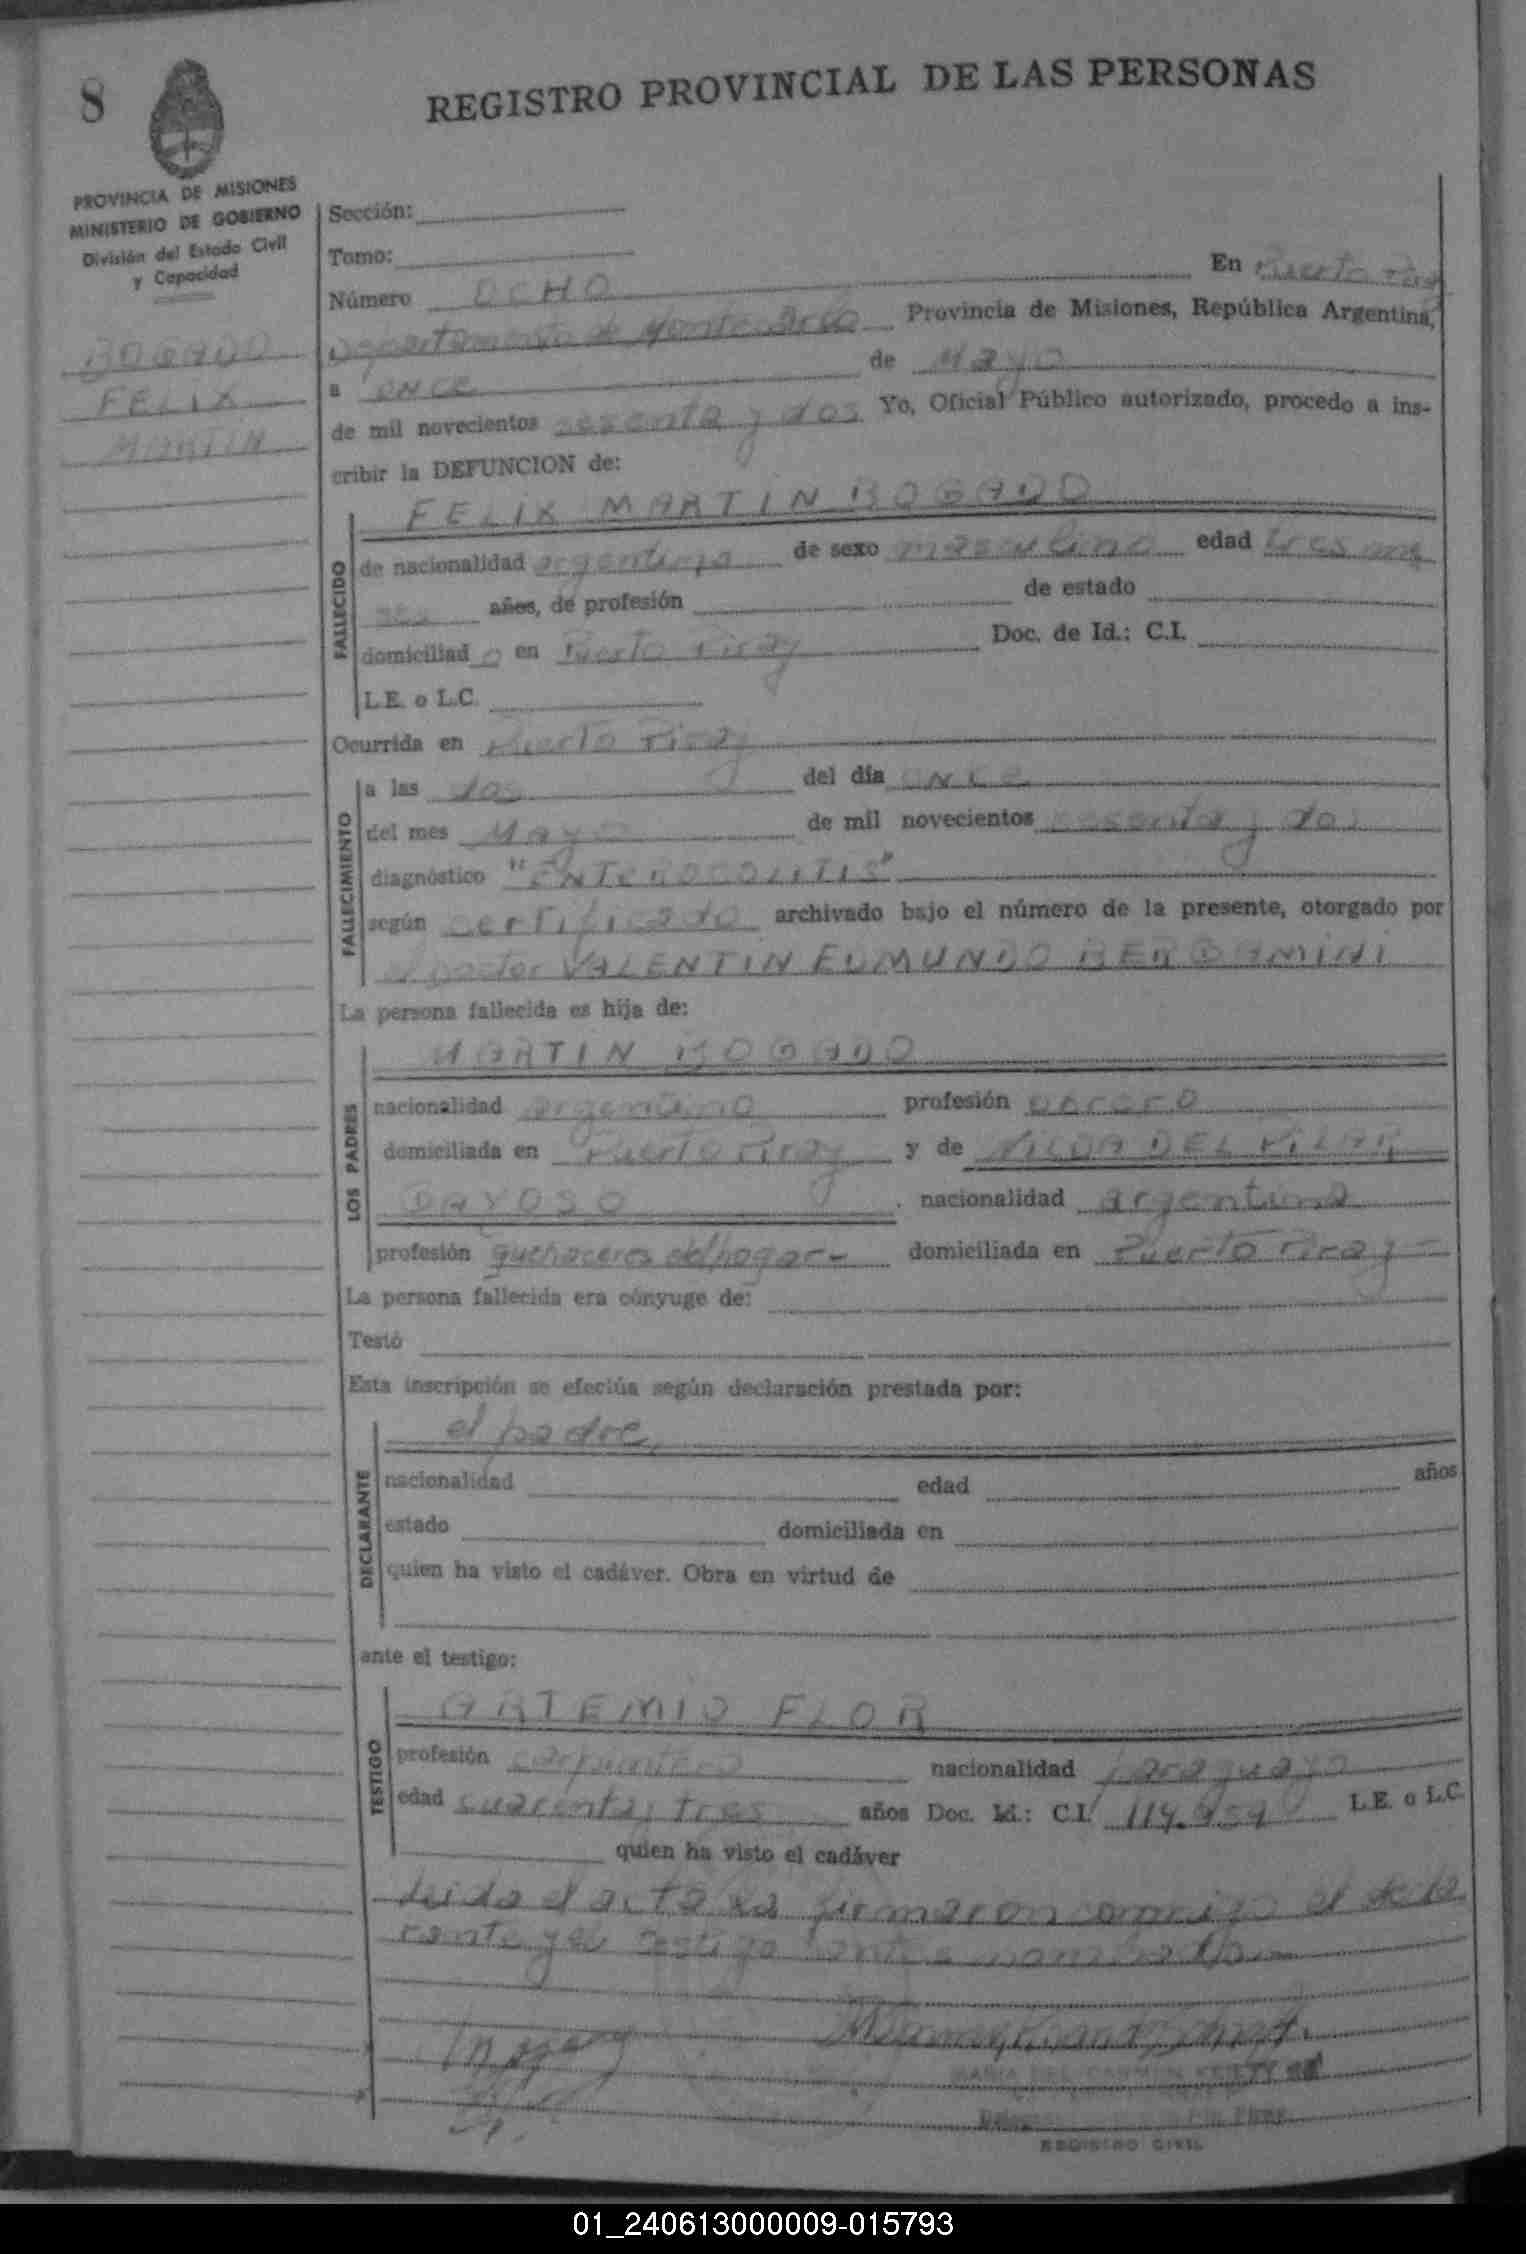 8
REGISTRO PROVINCIAL DE LAS PERSONAS
PROVINCIA DE MISIONES
MINISTERIO DE GOBIERNO
División del Estado Civil
y Capacidad
BOGADO
FELIX
MARTIN
Sección:
Tomo:
Número OCHO En Puerto Piray
Departamento de Montecarlo Provincia de Misiones, República Argentina,
a once de Mayo
de mil novecientos sesenta y dos Yo, Oficial Público autorizado, procedo a ins-
cribir la DEFUNCION de:
FELIX MARTIN BOGADO
FALLECIDO
de nacionalidad argentina de sexo masculino edad tres me
ses años, de profesión de estado
domiciliado en Puerto Piray Doc. de Id.: C.I.
L.E. o L.C.
Ocurrida en Puerto Piray
FALLECIMIENTO
a las dos del día once
del mes Mayo de mil novecientos sesenta y dos
diagnóstico "ENTEROCOLITIS"
según certificado archivado bajo el número de la presente, otorgado por
el Doctor VALENTIN EDMUNDO BERGAMINI
La persona fallecida es hija de:
LOS PADRES
MARTIN BOGADO
nacionalidad argentino profesión obrero
domiciliada en Puerto Piray y de NILDA DEL PILAR
GAYOSO nacionalidad argentina
profesión quehaceres del hogar- domiciliada en Puerto Piray-
La persona fallecida era cónyuge de:
Testó
Esta inscripción se efectúa según declaración prestada por:
DECLARANTE
el padre,
nacionalidad edad años
estado domiciliada en
quien ha visto el cadáver. Obra en virtud de
ante el testigo:
TESTIGO
ARTEMIO FLOR
profesión carpintero nacionalidad paraguayo
edad cuarenta y tres años Doc. Id.: C.I. 114.959 L.E. o L.C.
quien ha visto el cadáver
Leida el acta la firmaron conmigo el decla
rante y el testigo antes nombrado.-
MARIA DEL CARMEN
REGISTRO CIVIL
01_240613000009-015793